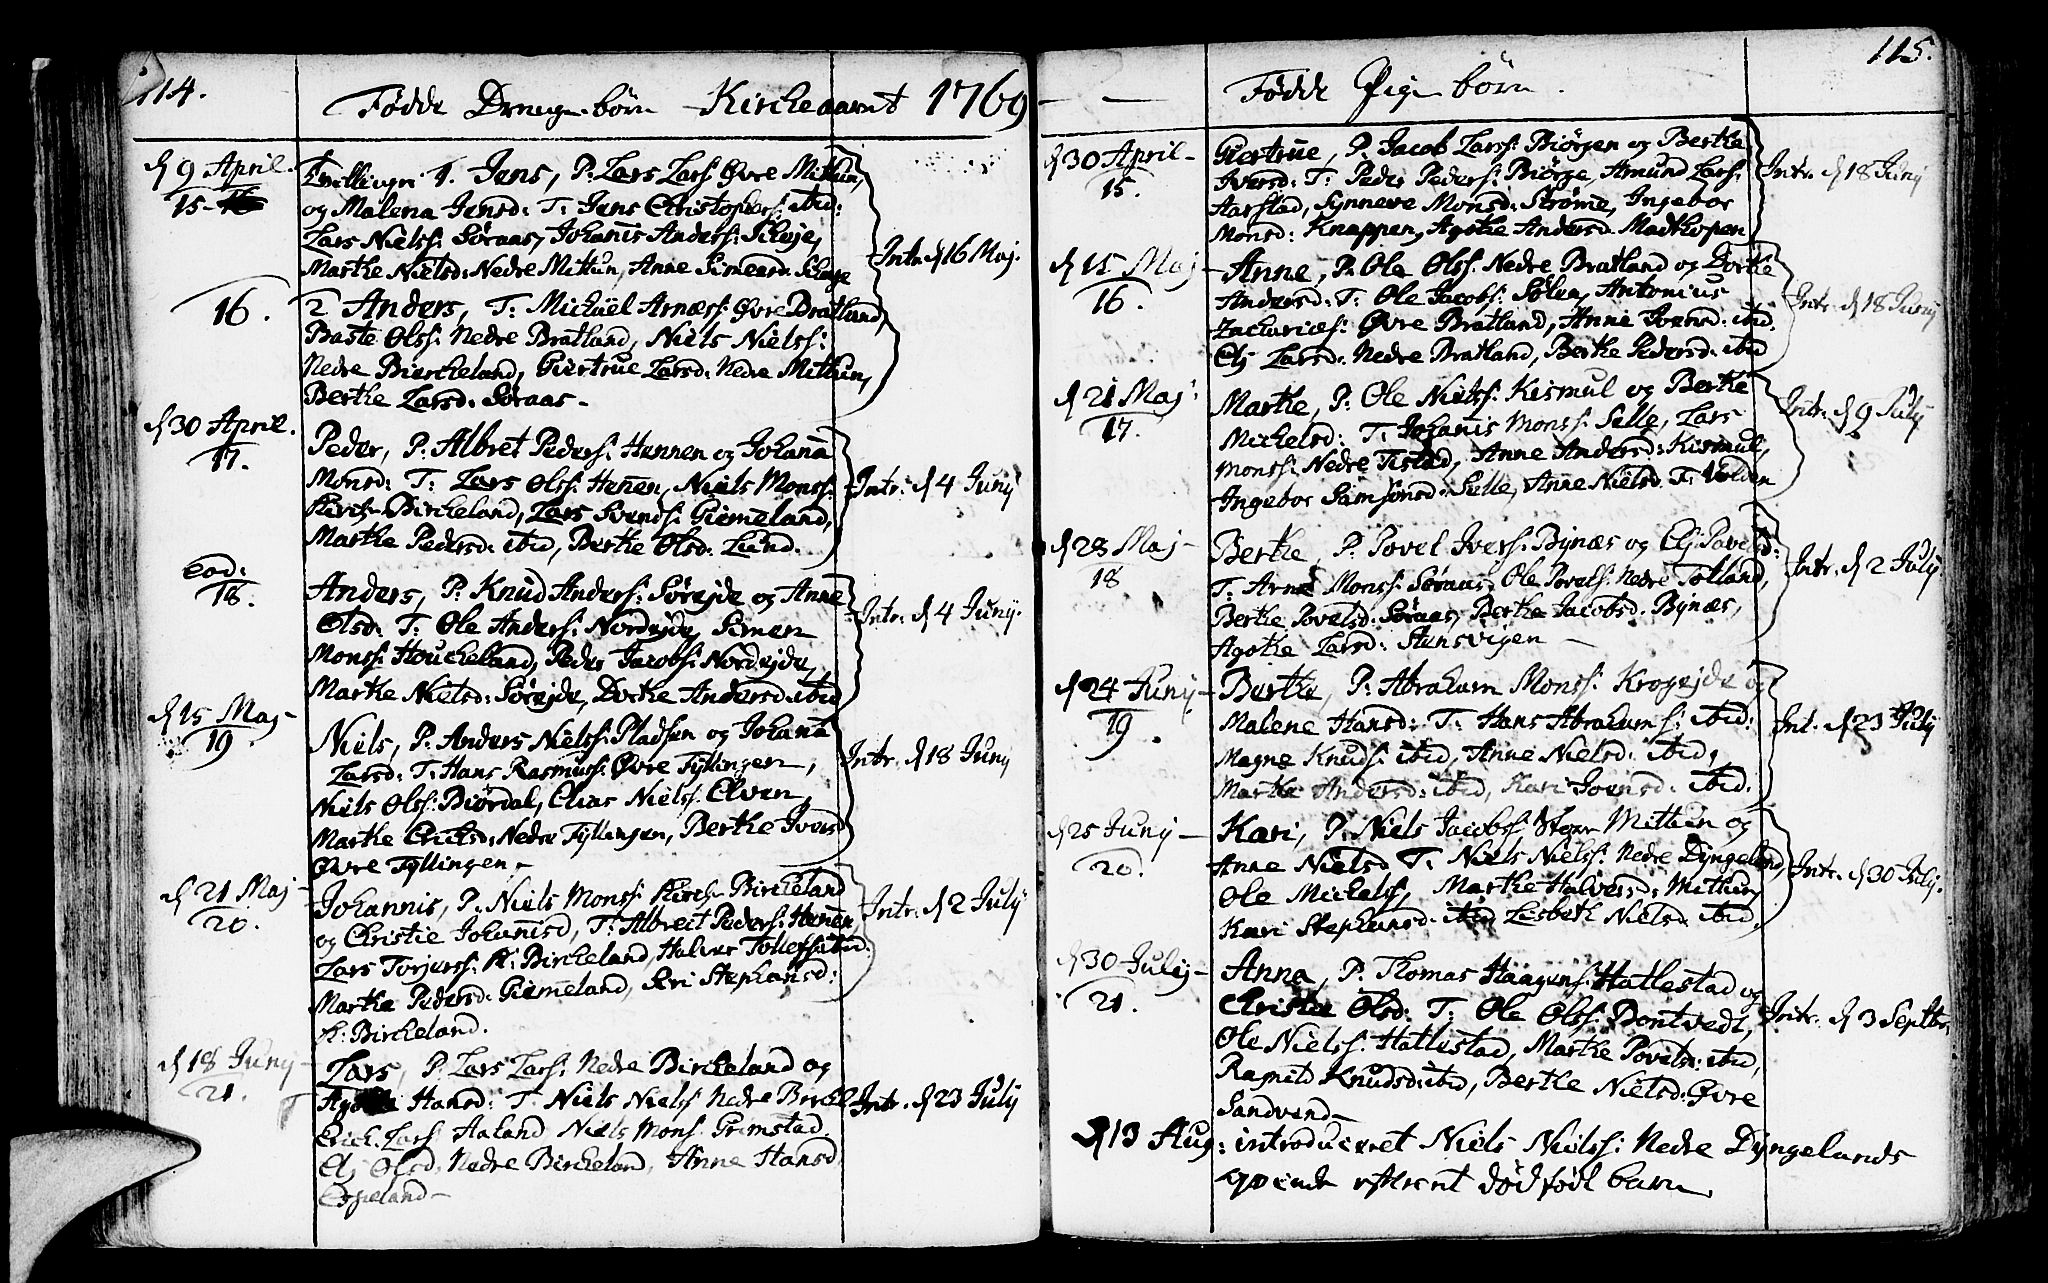 114.
Fødde Drengebørn Kircheaaret 1769
d 9 April.
15
Tvillinger 1. Jens, P: Lars Lars: Øvre Mittun,
og Malena Jensd: T: Jens Christophers: ibid:
Lars Nielss: Søraas, Johanis Anders: Scheje,
Marthe Nielsd: Nedre Mittun, Anne Simensd: Scheje
Intr. d 16 Maj.
16.
2 Anders, T: Michaël Arness: Øvre Bratland,
Baste Olss: Nedre Bratland, Niels Nielss:
Nedre Biercheland, Giertrue Larsd: Nedre Mittun,
Berthe Larsd: Søraas
d 30 April.
17.
Peder, P: Albret Peders: Hennen og Johana
Monsd: T: Lars Olss: Henen, Niels Monss:
Kirch-Bircheland, Lars Svends: Giemeland,
Marthe Pedersd: ibid, Berthe Olsd: Lund.
Intr: d 4 Junij
Eod:
18.
Anders, P: Knud Anders: Sørejde og Anne
Olsd: T: Ole Anders: Nordejde, Simen
Monss: Houcheland, Peder Jacobs: Nordejde,
Marthe Nielsd: Sørejde, Dorthe Andersd: ibid
Intr. d 4 Junij.
d 15 Maj
19
Niels, P: Anders Nielss: Pladsen og Johana
Larsd: T: Hans Rasmuss: Øvre Tyllingen,
Niels Olss: Biørdal, Elias Niels: Elven,
Marthe Erichsd: Nedre Tyllingen, Berthe Iversd
Øvre Tyllingen
Intr. d 18 Junij
d 21 Maj
20.
Johannis, P: Niels Monss: Kirch-Bircheland
og Christie Johanisd, T: Albrect Peders: Henen,
Lars Torjerss: K: Bircheland, Halver Tollefs: ibid.
Marthe Pedersd: Giemeland, Siri Stephansd:
K: Bircheland.
Intr: d 2 Julij
d 18 Junij
21.
Lars, P: Lars Lars: Nedre Bircheland og
Hansd: T: Niels Niels: Nedre Birchel
Erich Lars: Aaland Niels Mons: Grimstad
Elj Olsd. Nedre Bircheland, Anne Hansd
Espeland
Intr. d 23 Julij
115.
Fødde Pigebørn.
d 30 April
15.
Giertrue, P: Jacob Larss: Biørgen og Berthe
Iversd: T: Peder Peders: Biørge, Amund Lars:
Aarstad, Synneve Monsd: Strøme, Ingebor
Monsd: Knappen, Agothe Andersd. Madthopen
Intr. d 18 Junij
d 15 Maj
16.
Anne, P: Ole Olss: Nedre Bratland og Dorthe
Andersd: T: Ole Jacobs: Sølen, Antonius
Zacharies: Øvre Bratland, Anne Iversd: ibid.
Elj Larsd: Nedre Bratland, Berthe Pedersd: ibid
Intr. d 18 Junij
d 21 Maj:
17.
Marthe, P: Ole Nielss: Kismul og Berthe
Michelsd: T: Johanis Monss: Selle, Lars
Monss: Nedre Tistad, Anne Andersd: Kismul,
Ingebor Samsonsd: Selle, Anne Nielsd: T: Volden
Intr. d 9 Julij
d 28 Maj
18
Berthe, P: Povel Ivers: Bynæs og Elj Povelsd:
T: Arne Monss: Søraas, Ole Povels: Nedre Totland,
Berthe Povelsd: Søraas, Berthe Jacobsd: Bynæs,
Agothe Larsd: Stensvigen
Intr. d 2 Julij
d 24 Junij
19.
Berthe, P: Abraham Monss: Krogejde og
Malene Hansd: T: Hans Abrahams: ibid:
Magne Knuds: ibid, Anne Nielsd: ibid,
Marthe Andersd: ibid, Kari Joensd: ibid.
Int. d 23 Julij
d 25 Junij
20.
Kari, P: Niels Jacobs: Mittun og
Anne Nielsd T: Niels Nielss: Nedre Dyngeland,
Ole Michels, Marthe Halversd: Mittun,
Kari Stephansd: ibid Lisbeth Nielsd: ibid.
Intr. d 30 Julij.
d 30 Julij
21.
Anna, P: Thomas Haagens: Hatlestad og
Christie Olsd: T: Ole Olss: Bontvedt,
Ole Nielss: Hatlestad, Marthe Povelsd: ibid,
Ragnild Knudsd: ibid, Berthe Nielsd: Øvre
Sandvend
Intr. d 3 Septbr.
d 13 Aug: introduceret Niels Nielss: Nedre Dyngelands
qvinde efter et dødfødt barn